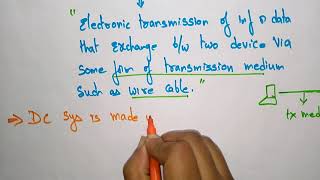 "Electronic transmission of inf & data
that exchange b/w two device via
some form of transmission medium
such as wire cable."
tx med
⇒ DC sys is made